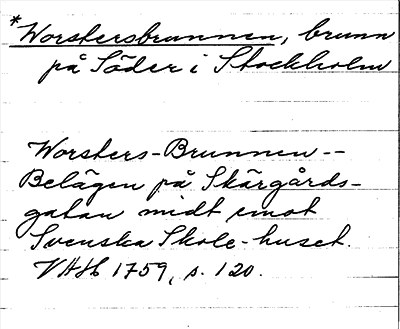 *Worstersbrunnen, brunn
på Söder i Stockholm
Worsters-Brunnen--
Belägen på Skärgårds-
gatan midt emot
Svenska Skole-huset.
VAH 1759, s. 120.